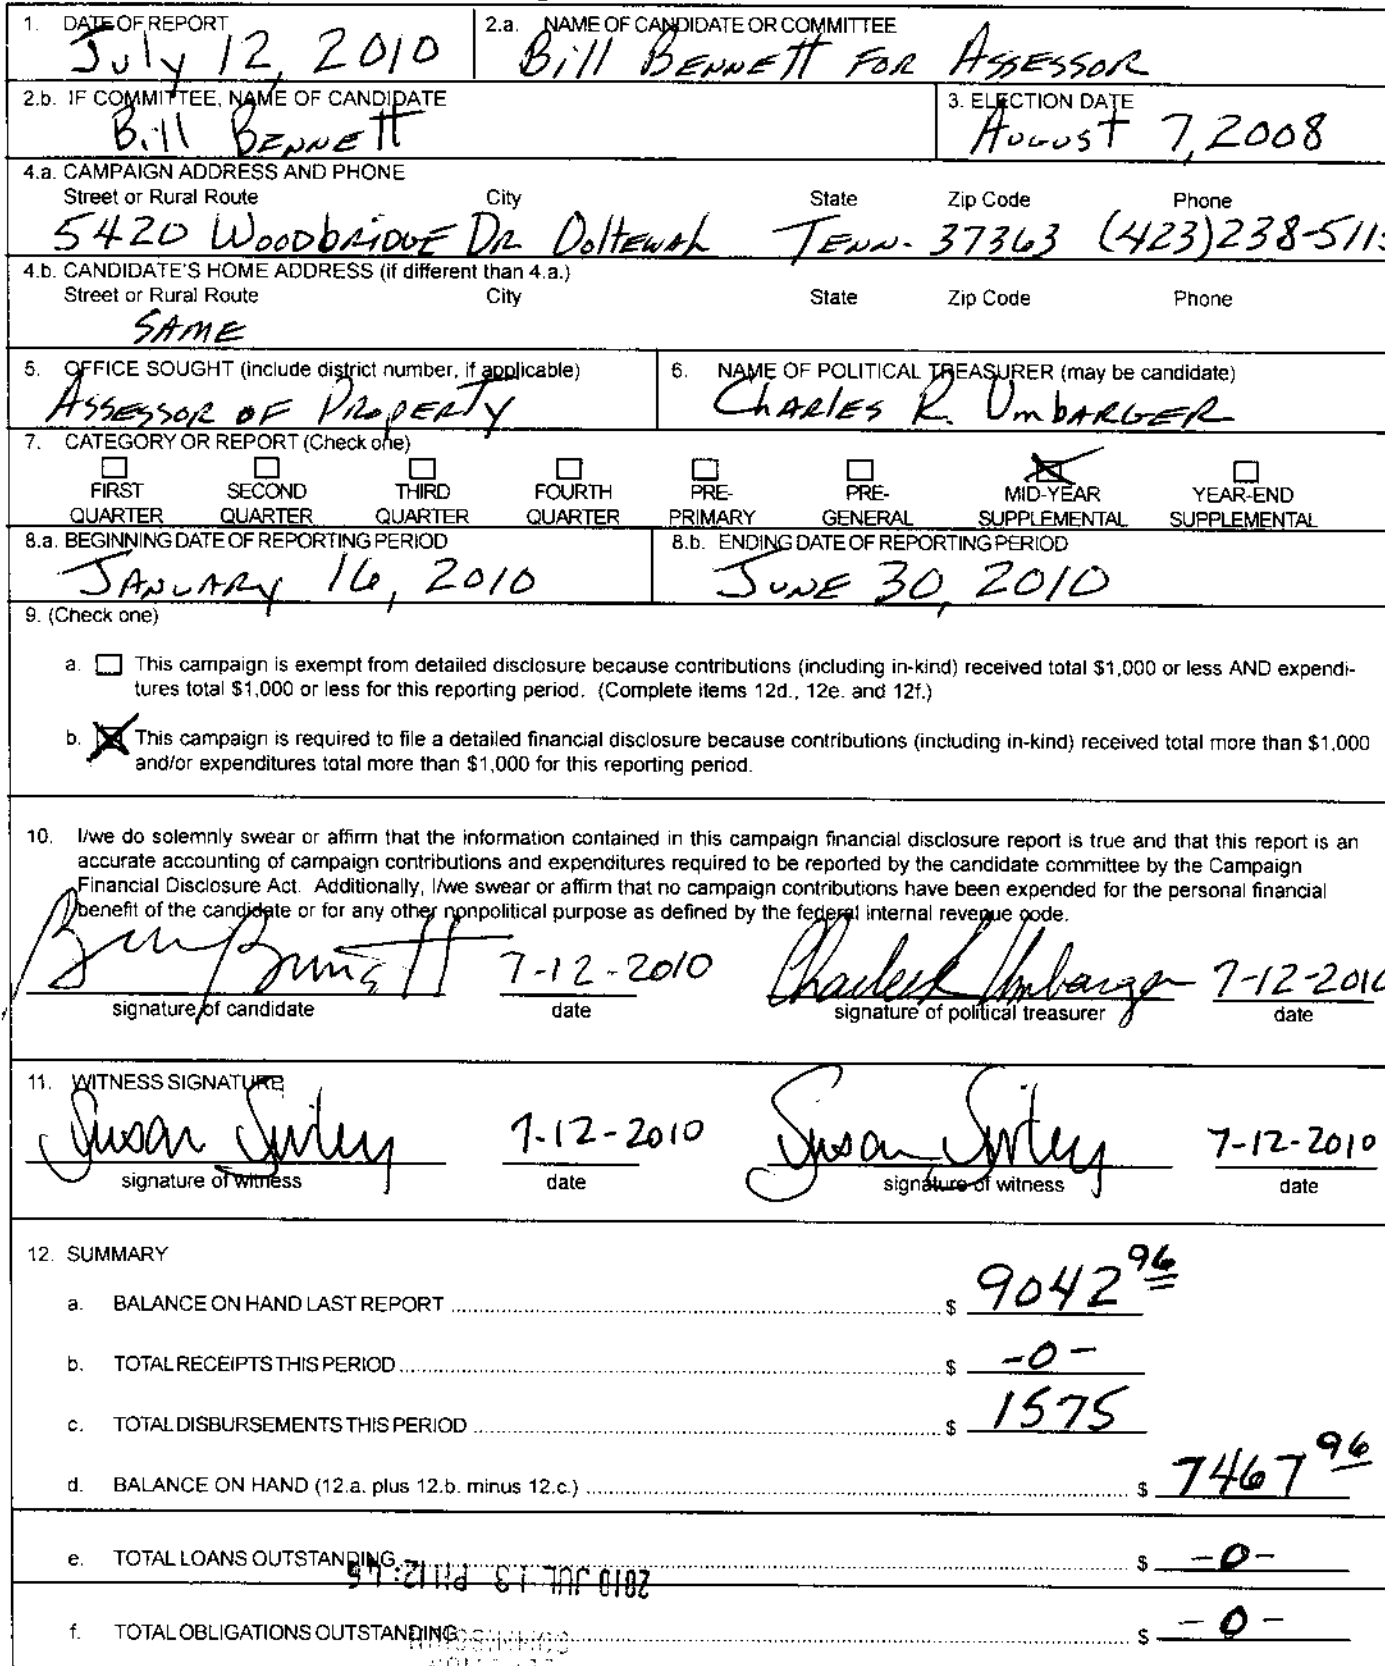 1. DATE OF REPORT
July 12, 2010
2.a. NAME OF CANDIDATE OR COMMITTEE
Bill BENNETT FOR ASSESSOR
2.b. IF COMMITTEE, NAME OF CANDIDATE
Bill BENNETT
3. ELECTION DATE
AUGUST 7, 2008
4.a. CAMPAIGN ADDRESS AND PHONE
Street or Rural Route City State Zip Code Phone
5420 WOODbRIDGE DR OOltEWAh TENN. 37363 (423)238-511
4.b. CANDIDATE'S HOME ADDRESS (if different than 4.a.)
Street or Rural Route City State Zip Code Phone
SAME
5. OFFICE SOUGHT (include district number, if applicable)
ASSESSOR OF PROPERTY
6. NAME OF POLITICAL TREASURER (may be candidate)
ChARlES R. UmbARGER
7. CATEGORY OR REPORT (Check one)
FIRST SECOND THIRD FOURTH PRE- PRE- MID-YEAR YEAR-END
QUARTER QUARTER QUARTER QUARTER PRIMARY GENERAL SUPPLEMENTAL SUPPLEMENTAL
8.a. BEGINNING DATE OF REPORTING PERIOD
JANUARY 16, 2010
8.b. ENDING DATE OF REPORTING PERIOD
JUNE 30, 2010
9. (Check one)
a. This campaign is exempt from detailed disclosure because contributions (including in-kind) received total $1,000 or less AND expendi-
tures total $1,000 or less for this reporting period. (Complete items 12d., 12e. and 12f.)
b. This campaign is required to file a detailed financial disclosure because contributions (including in-kind) received total more than $1,000
and/or expenditures total more than $1,000 for this reporting period.
10. I/we do solemnly swear or affirm that the information contained in this campaign financial disclosure report is true and that this report is an
accurate accounting of campaign contributions and expenditures required to be reported by the candidate committee by the Campaign
Financial Disclosure Act. Additionally, I/we swear or affirm that no campaign contributions have been expended for the personal financial
benefit of the candidate or for any other nonpolitical purpose as defined by the federal internal revenue code.
Bill Bennett 7-12-2010 Charles R Umbarger 7-12-2010
signature of candidate date signature of political treasurer date
11. WITNESS SIGNATURE
Susan 7-12-2010 Susan 7-12-2010
signature of witness date signature of witness date
12. SUMMARY
a. BALANCE ON HAND LAST REPORT $ 9042 96
b. TOTAL RECEIPTS THIS PERIOD $ -0-
c. TOTAL DISBURSEMENTS THIS PERIOD $ 1575
d. BALANCE ON HAND (12.a. plus 12.b. minus 12.c.) $ 7467 96
e. TOTAL LOANS OUTSTANDING $ -0-
2010 JUL 13 PM 12:45
f. TOTAL OBLIGATIONS OUTSTANDING $ -0-